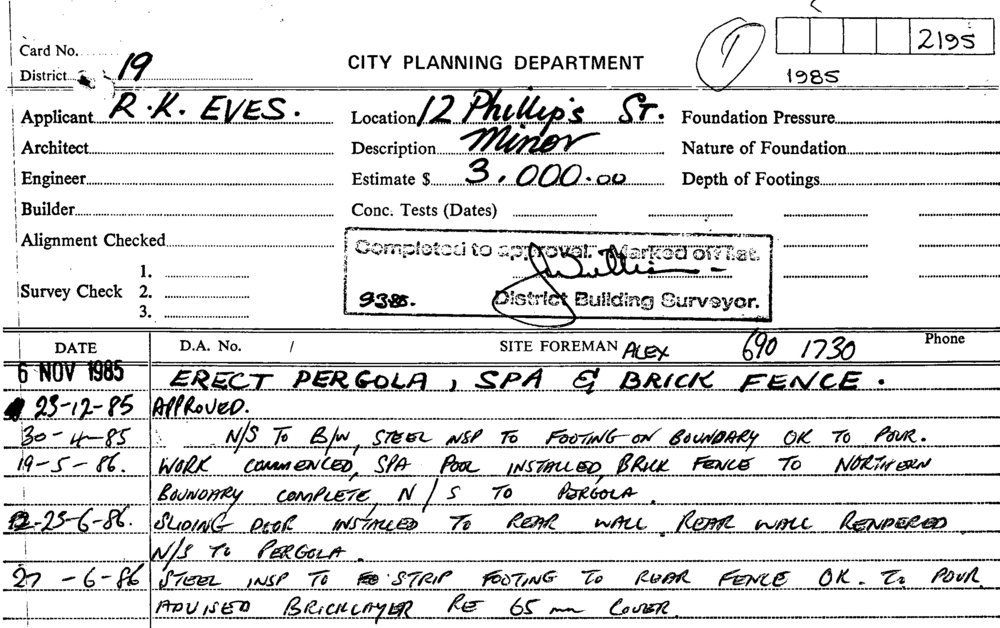 1
2195
Card No.
District 19
CITY PLANNING DEPARTMENT
1985
Applicant R.K. EVES.
Location 12 Phillip's St.
Foundation Pressure
Architect
Description Minor
Nature of Foundation
Engineer
Estimate $ 3,000.00
Depth of Footings
Builder
Conc. Tests (Dates)
Alignment Checked
Completed to approval. Marked off List.
Survey Check 1.
2.
3.
District Building Surveyor.
DATE
D.A. No. /
SITE FOREMAN ALEX 690 1730 Phone
6 NOV 1985 ERECT PERGOLA, SPA & BRICK FENCE.
23-12-85 APPROVED.
30-4-85 N/S TO B/W, STEEL INSP TO FOOTING ON BOUNDARY OK TO POUR.
19-5-86. WORK COMMENCED, SPA POOL INSTALLED, BRICK FENCE TO NORTHERN
BOUNDARY COMPLETE, N/S TO PERGOLA.
23-6-86. SLIDING DOOR INSTALLED TO REAR WALL. REAR WALL RENDERED
N/S TO PERGOLA.
27-6-86 STEEL INSP TO STRIP FOOTING TO REAR FENCE OK. TO POUR
ADVISED BRICKLAYER RE 65 mm COVER.